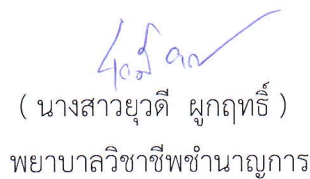 ( นางสาวยุวดี ผูกฤทธิ์ )
พยาบาลวิชาชีพชำนาญการ